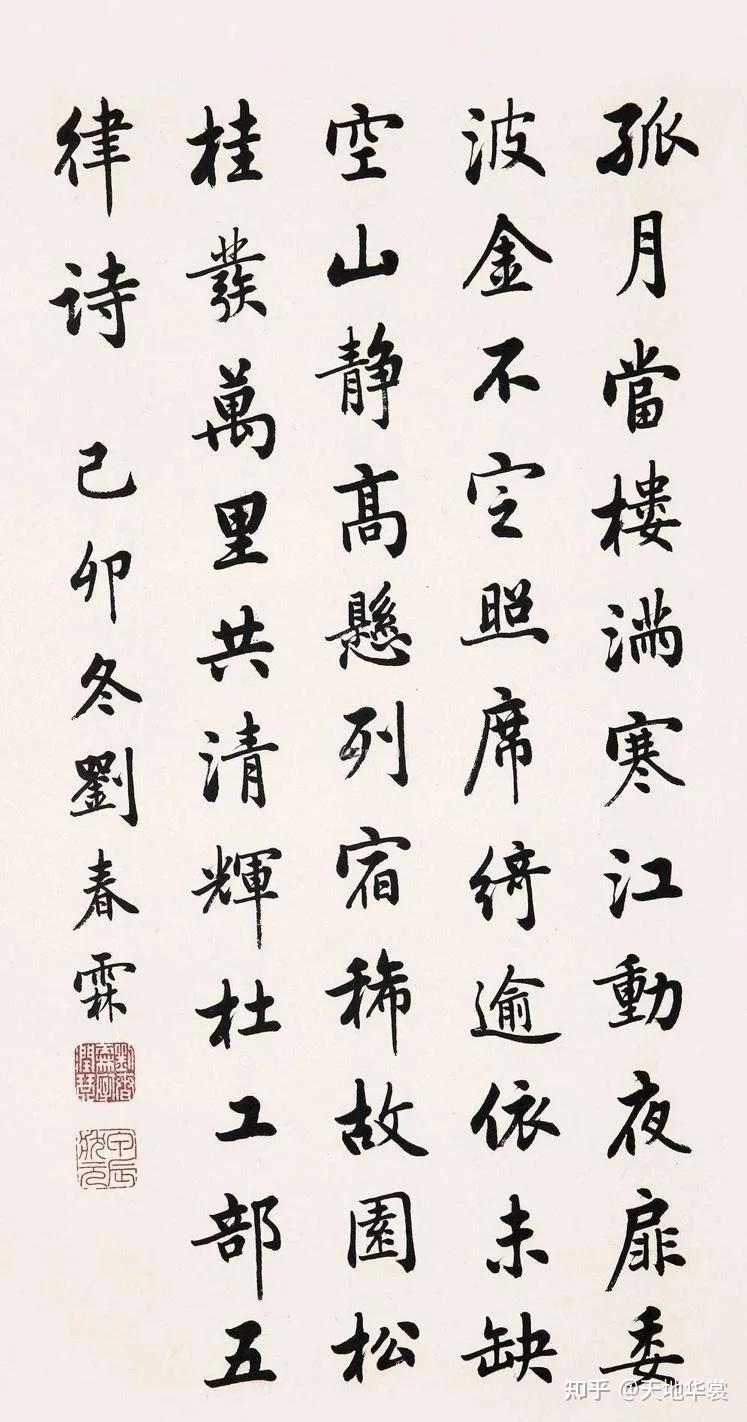 孤月當樓滿寒江動夜扉委
波金不定照席綺逾依未缺
空山靜高懸列宿稀故園松
桂發萬里共清輝杜工部五
律詩 己卯冬劉春霖
劉春霖印潤琴
甲辰狀元
知乎 @天地华裳